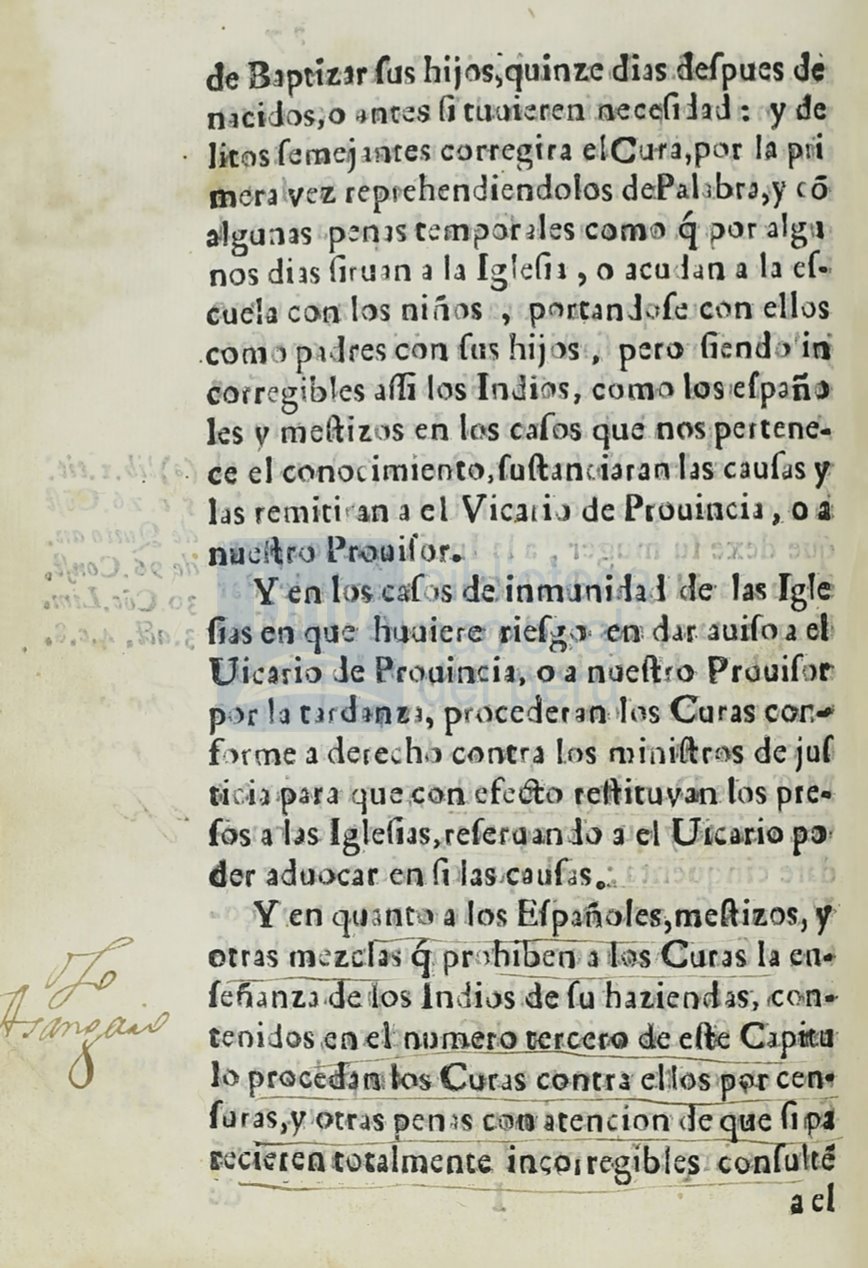 de Baptizar ſus hijos, quinze dias deſpues de
nacidos, o antes ſi tuuieren neceſidad: y de
litos ſemejantes corregira el Cura, por la pri
mera vez reprehendiendolos de Palabra, y cõ
algunas penas temporales como q́ por algu
nos dias ſiruan a la Igleſia, o acudan a la eſ-
cuela con los niños, portandoſe con ellos
como padres con ſus hijos, pero ſiendo in
corregibles aſſi los Indios, como los eſpaño
les y meſtizos en los caſos que nos pertene-
ce el conocimiento, ſuſtanciaran las cauſas y
las remitiran a el Vicario de Prouincia, o a
nueſtro Prouiſor.
Y en los caſos de inmunidad de las Igle
ſias en que huuiere rieſgo en dar auiſo a el
Uicario de Prouincia, o a nueſtro Prouiſor
por la tardanza, procederan los Curas con-
forme a derecho contra los miniſtros de juſ
ticia para que con efecto reſtituyan los pre-
ſos a las Igleſias, reſeruando a el Uicario po
der aduocar en ſi las cauſas.
Y en quanto a los Eſpañoles, meſtizos, y
otras mezclas q́ prohiben a los Curas la en-
ſeñanza de los Indios de ſu haziendas, con-
tenidos en el numero tercero de eſte Capitu
lo procedan los Curas contra ellos por cen-
ſuras, y otras penas con atencion de que ſi pa
recieren totalmente incorregibles conſultẽ
a el